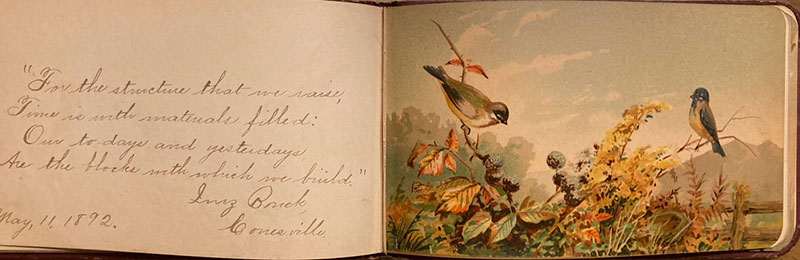 "For the structure that we raise,
Time is with materials filled:
Our to days and yesterdays
Are the blocks with which we build."
Conesville,
May, 11, 1892.